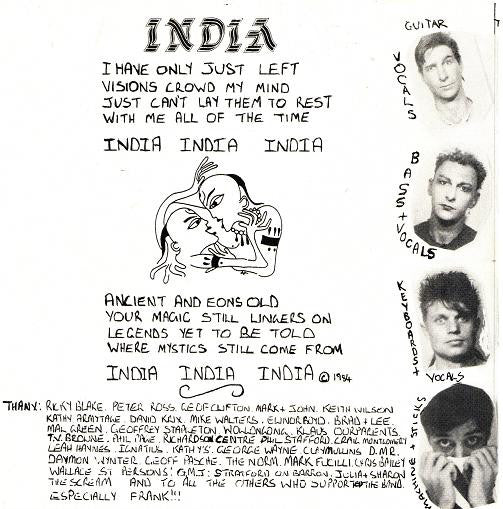 INDIA
I HAVE ONLY JUST LEFT
VISIONS CROWD MY MIND
JUST CAN'T LAY THEM TO REST
WITH ME ALL OF THE TIME
INDIA INDIA INDIA
ANCIENT AND EONS OLD
YOUR MAGIC STILL LINGERS ON
LEGENDS YET TO BE TOLD
WHERE MYSTICS STILL COME FROM
INDIA INDIA INDIA © 1984
THANX: RICKY BLAKE. PETER ROSS. GEOF CLIFTON. MARK + JOHN. KEITH WILSON
KATHY ARMITAGE. DAVID KNX. MIKE WALTERS. ELINOR BOYD. BRAD + LEE.
MAL GREEN. GEOFFREY STAPLETON. WOLLONGONG. KLAUS. OUR PARENTS.
T.V. BROWNE. PHIL PAGE. RICHARDSON CENTRE PHIL STAFFORD. CRAIG MONTGOMERY
LEAH HAYNES. IGNATIUS. KATHY'S. GEORGE WAYNE CLAYMULLINS D.M.R.
DAYMON WYNTER GEOFF PASCHE. THE NORM. MARK FUCILLI. CHRIS BAILEY
WALLACE ST PERSONS! G.M.I; STRATFORD ON BARRON. JULIA + SHARON
THE SCREAM AND TO ALL THE OTHERS WHO SUPPORTED THE BAND.
ESPECIALLY FRANK!!!
GUITAR
VOCALS
BASS + VOCALS
KEYBOARDS +
VOCALS
MACHINE + STICKS